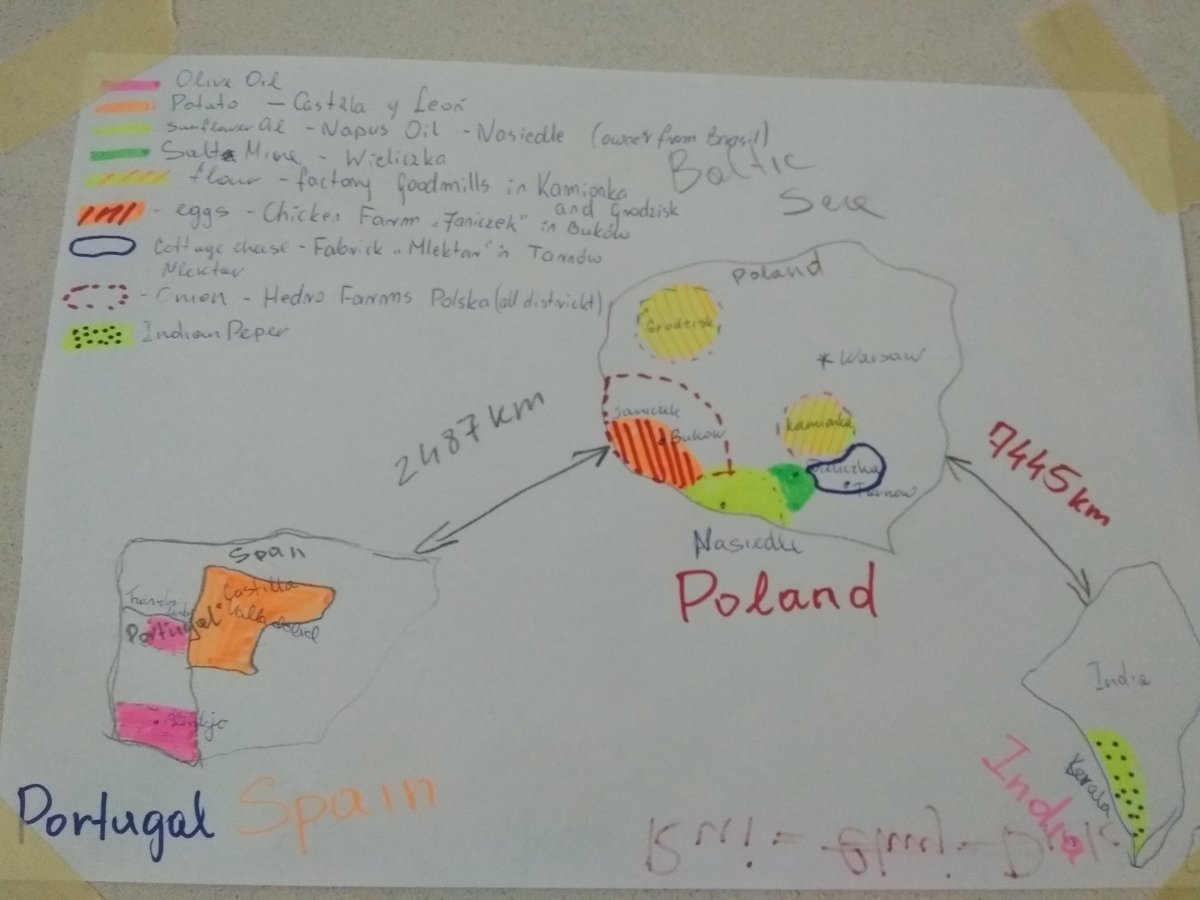 Olive Oil
Potato - Castilla y León
Sunflower Oil - Napus Oil - Nasiedle (owner from Brasil)
Salt Mine - Wieliczka
flour - factory Goodmills in Kamionka
and Grodzisk
- eggs - Chicken Farm "Janiczek" in Buków
Cottage chase - Fabrick "Mlektar" in Tarnów
Mlektar
- Onion - Hedro Farms Polska (all districkt)
Indian Peper
Baltic
See
Poland
Grodzisk
* Warsaw
Janiczek
Buków
Kamionka
Wieliczka
Tarnow
Nasiedle
Poland
2487 km
7445 km
Span
Castilla
Valladolid
Portugal
Portugal
Spain
India
Kerala
India